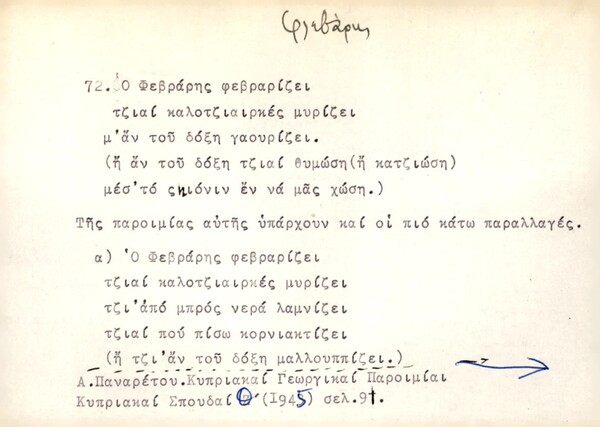 Φλεβάρης
72. Ὁ Φεβράρης φεβραρίζει
τζιαί καλοτζιαιρκές μυρίζει
μ'ἄν τοῦ δόξη γαουρίζει.
(ἤ ἄν τοῦ δόξη τζιαί θυμώση(ἤ κατζιώση)
μέσ'τό σ̌ιόνιν ἔν νά μᾶς χώση.)
Τῆς παροιμίας αὐτῆς ὑπάρχουν καί οἱ πιό κάτω παραλλαγές.
α) Ὁ Φεβράρης φεβραρίζει
τζιαί καλοτζιαιρκές μυρίζει
τζι'ἀπό μπρός νερά λαμνίζει
τζιαί πού πίσω κορνιακτίζει
(ἤ τζι'ἄν τοῦ δόξη μαλλουππίζει.)
Α.Παναρέτου.Κυπριακαί Γεωργικαί Παροιμίαι
Κυπριακαί Σπουδαί (1945) σελ.91.